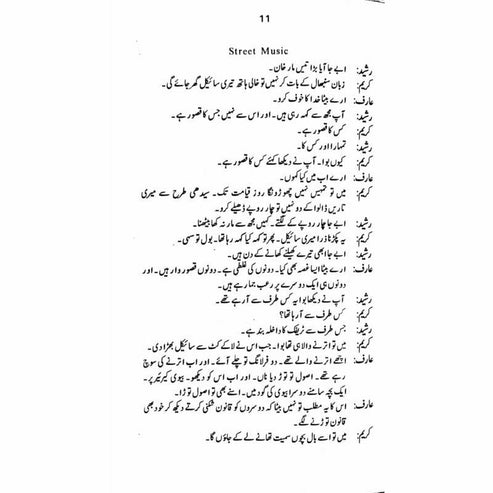 11
Street Music
رشید: ابے جا آیا بڑا تیس مار خان۔
کریم: زبان سنبھال کے بات کر نہیں تو خالی ہاتھ تیری سائیکل گھر جائے گی۔
عارف: ارے بیٹا خدا کا خوف کرو۔
رشید: آپ مجھ سے کہہ رہی ہیں۔ اور اس سے نہیں جس کا قصور ہے۔
کریم: کس کا قصور ہے۔
رشید: تمہارا اور کس کا۔
کریم: کیوں بوا۔ آپ نے دیکھا کہئے کس کا قصور ہے۔
عارف: ارے اب میں کیا کہوں۔
کریم: میں تو تمہیں نہیں چھوڑونگا روز قیامت تک۔ سیدھی طرح سے میری
تاریں ڈلوا کے دو نہیں تو چار روپے ڈھیلے کرو۔
رشید: ابے جا چار روپے کے لگتے۔ کہیں مجھ سے مار نہ کھا بیٹھنا۔
کریم: یہ پکڑنا ذرا میری سائیکل۔ پھر تو کہہ کیا کہہ رہا تھا۔ بول تو سہی۔
رشید: ابے جا ابھی تیرے کھیلنے کھانے کے دن ہیں۔
عارف: ارے بیٹا ایسا غصہ بھی کیا۔ دونوں کی غلطی ہے۔ دونوں قصور وار ہیں۔ اور
دونوں ہی ایک دوسرے پر رعب جما رہے ہیں۔
رشید: آپ نے دیکھا بوا یہ کس طرف سے آ رہے تھے۔
کریم: کس طرف سے آ رہا تھا؟
رشید: جس طرف سے ٹریفک کا داخلہ بند ہے۔
کریم: میں تو اترنے والا ہی تھا بوا۔ جب اس نے لا کے کھٹ سے سائیکل بھڑا دی۔
عارف: اچھے اترنے والے تھے۔ دو فرلانگ تو چلے آئے۔ اور اب اترنے کی سوچ
رہے تھے۔ اصول تو توڑ دیا ناں۔ اور اب اس کو دیکھو۔ بیوی کیریئر پر۔
ایک بچہ سامنے دوسرا بیوی کی گود میں۔ اس نے بھی اصول تو توڑا۔
عارف: اس کا یہ مطلب تو نہیں بیٹا کہ دوسروں کو قانون شکنی کرتے دیکھ کر خود بھی
قانون توڑنے لگے۔
کریم: میں تو اسے بال بچوں سمیت تھانے لے کے جاؤں گا۔